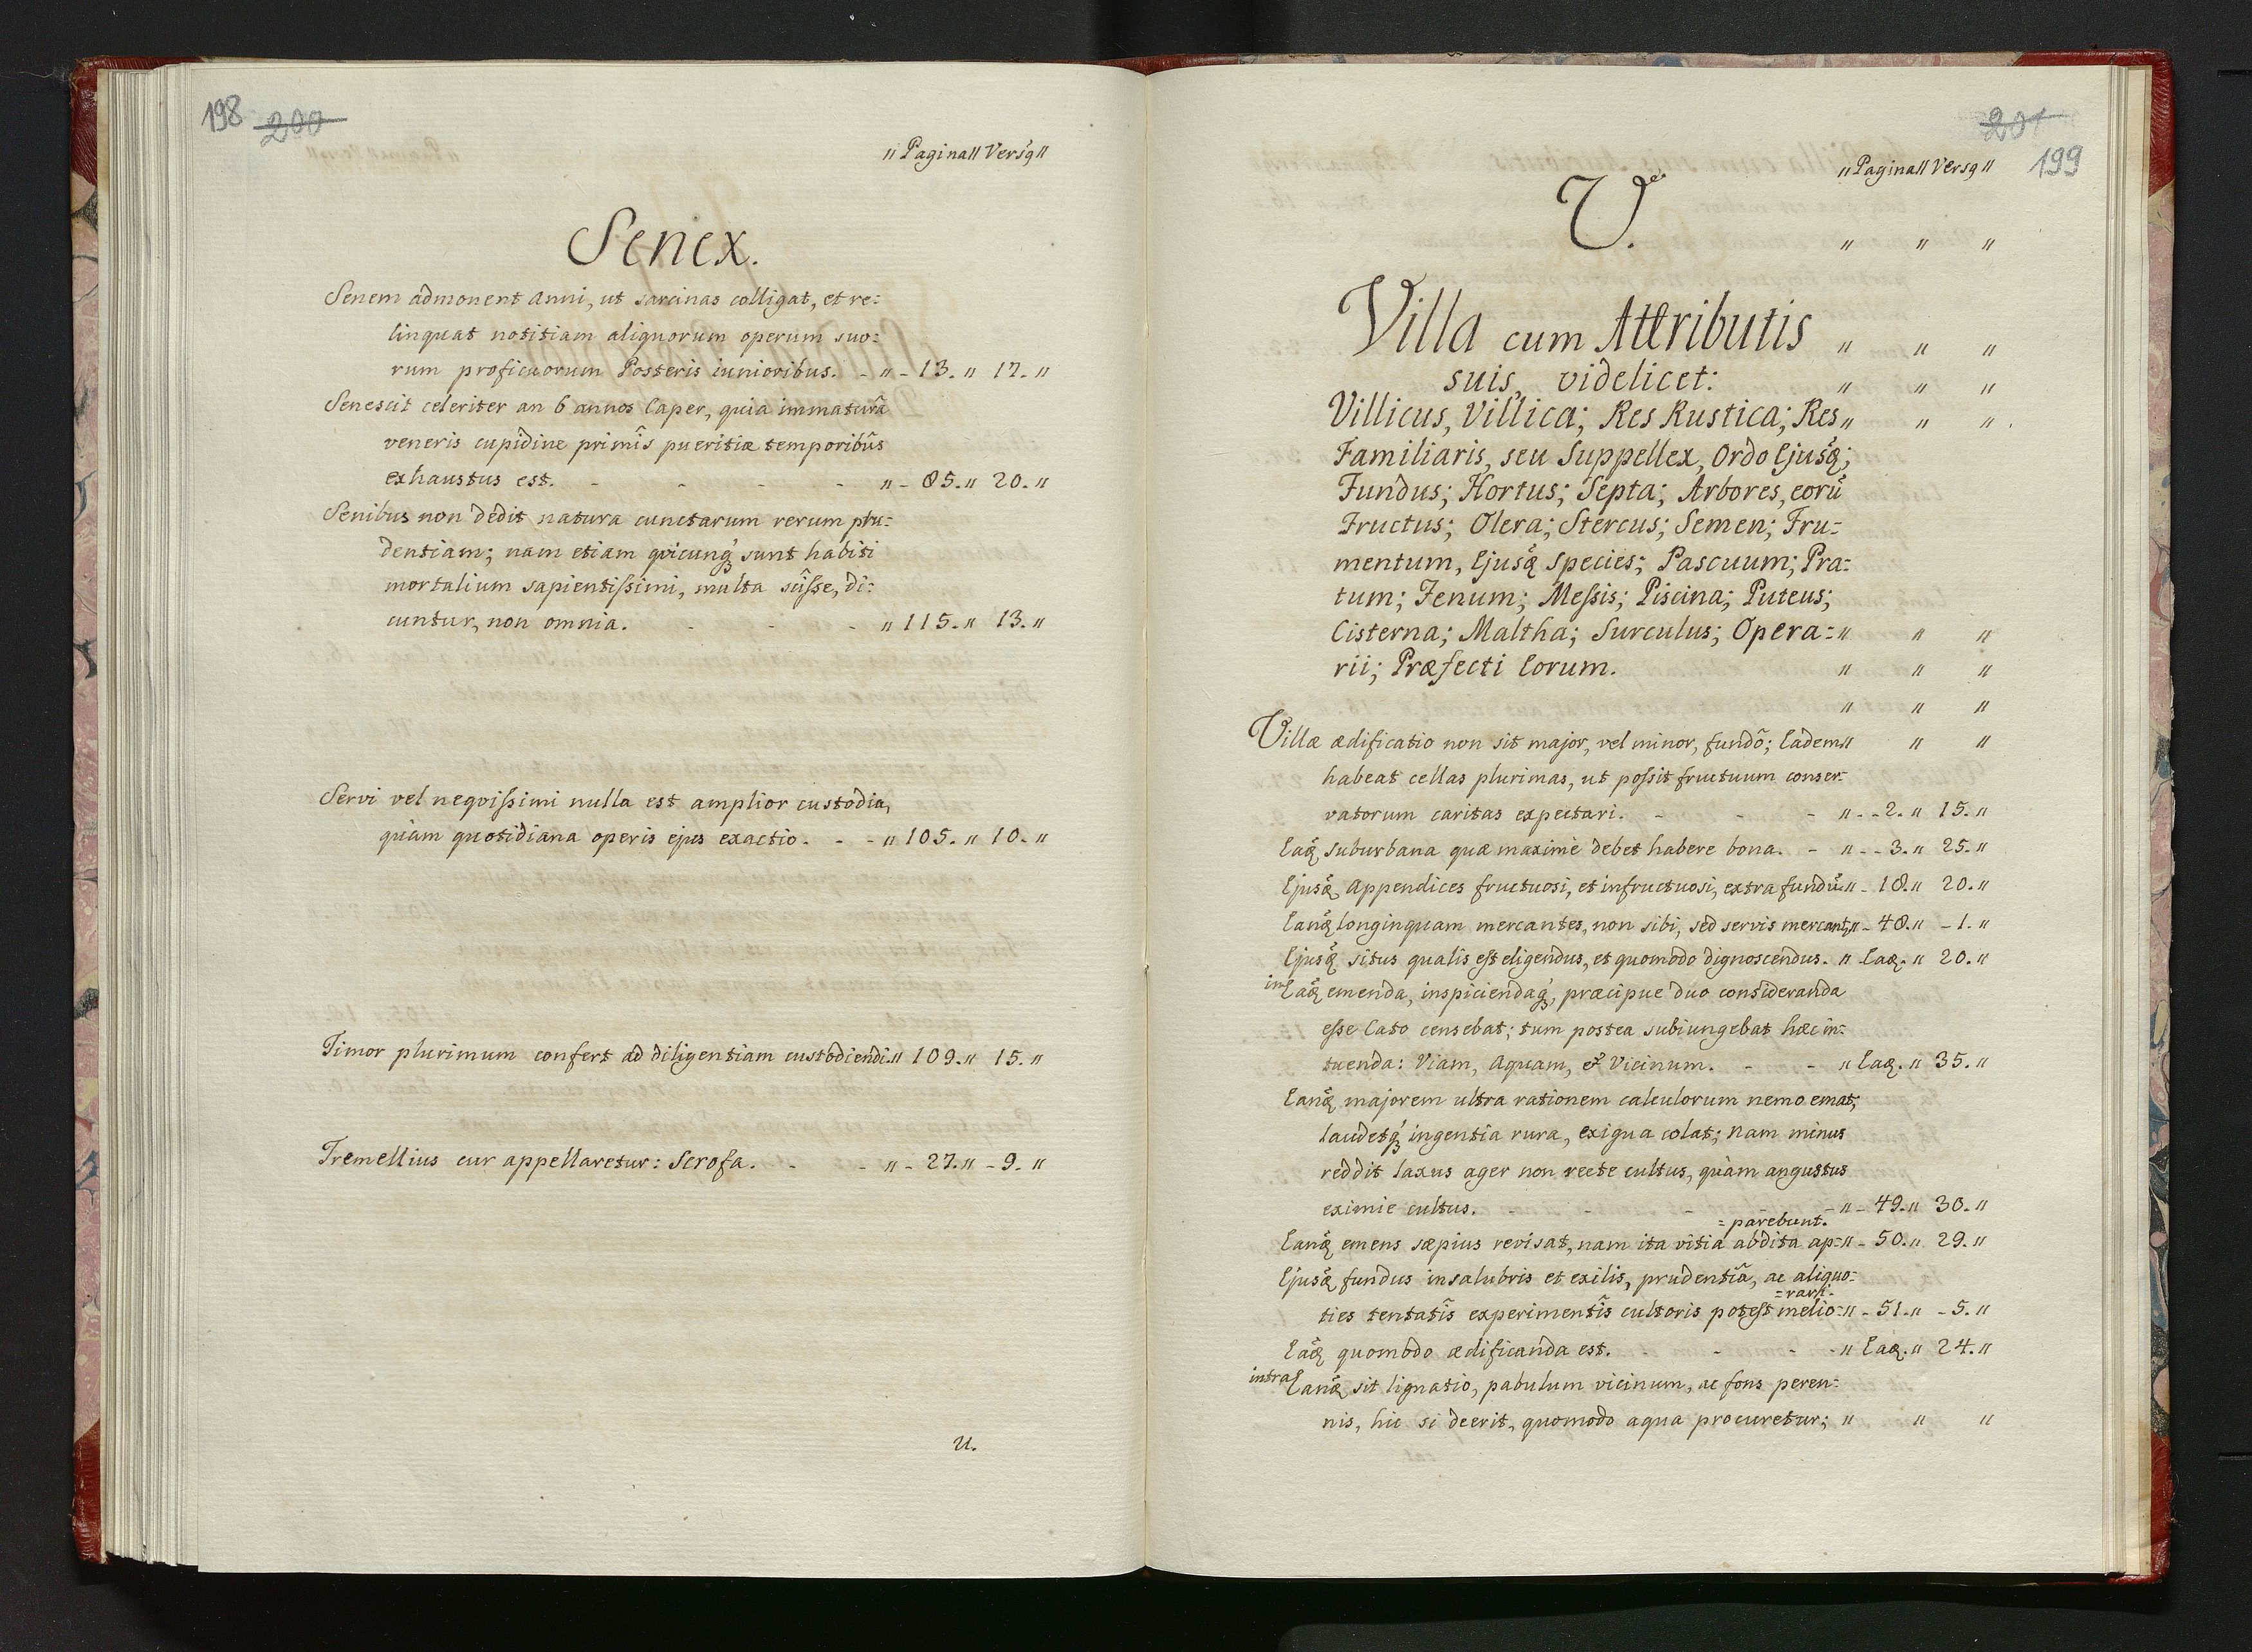 198 200
" Pagina " Versꝯ "
Senex.
Senem admonent Anni, ut sarcinas colligat, et re:
linquat notitiam aliquorum operum suo:
rum proficuorum Posteris iunioribus. - " - 13. " 17. "
Senescit celeriter an 6 annos Caper, quia immaturâ
veneris cupidine primîs pueritiæ temporibûs
exhaustus est. - - - - " - 85. " 20. "
Senibus non dedit natura cunctarum rerum pru:
dentiam; nam etiam qvicunq́ꝫ sunt habiti
mortalium sapientiſsimi, multa sciſse, di:
cuntur, non omnia. - - - " 115. " 13. "
Servi vel neqviſsimi nulla est amplior custodia,
quàm quotidiana operis ejus exactio. - - " 105. " 10. "
Timor plurimum confert ad diligentiam custodiendi. " 109. " 15. "
Tremellius cur appellaretur: Scrofa. - - " - 27. " - 9. "
U.
201
199
" Pagina " Versꝯ "
V. " " "
Villa cum Attributis " " "
suis, videlicet: " " "
Villicus, Villica; Res Rustica; Res " " "
Familiaris, seu Suppellex, Ordo Ejusq́;
Fundus; Hortus; Septa; Arbores, eorū
Fructus; Olera; Stercus; Semen; Fru:
mentum, Ejusq́ Species; Pascuum; Pra:
tum; Fenum; Meſsis; Piscina; Puteus;
Cisterna; Maltha; Surculus; Opera: " " "
rii; Præfecti Eorum. " " "
" " "
Villæ ædificatio non sit major, vel minor, fundô; Eadem " " "
habeat cellas plurimas, ut poſsit fructuum conser:
vatorum caritas expectari. - - - " - - 2. " 15. "
Eaq́ suburbana quæ maximè debet habere bona. - " - - 3. " 25. "
Ejusq́ Appendices fructuosi, et infructuosi, extra fundū " - 18. " 20. "
Eanq́ longinquam mercantes, non sibi, sed servis mercant. " - 48. " - 1. "
Ejusq́ situs qualis eſt eligendus, et quomodo dignoscendus. " Eaq. " 20. "
in Eaq́ emenda, inspiciendaq́ꝫ, præcipue duo consideranda
eſse Cato censebat; tum postea subiungebat hæc in:
tuenda: Viam, Aquam, et Vicinum. - - " Eaq. " 35. "
Eanq́ majorem ultra rationem calculorum nemo emat,
laudetq́ꝫ ingentia rura, exigua colat; nam minus
reddit laxus ager non recte cultus, quàm angustus
eximie cultus. - - - - " - 49. " 30. "
= parebunt.
Eanq́ emens sæpius revisat, nam ita vitia abdita ap: " - 50. " 29. "
Ejusq́ fundus insalubris et exilis, prudentiâ, ac aliquo:
= rari.
ties tentatîs experimentîs cultoris poteſt melio: " - 51. " - 5. "
Eaq́ quomodo ædificanda est. - - - " Eaq. " 24. "
intra Eanq́ sit lignatio, pabulum vicinum, ac fons peren:
nis, hic si deerit, quomodo aqua procuretur; " " "